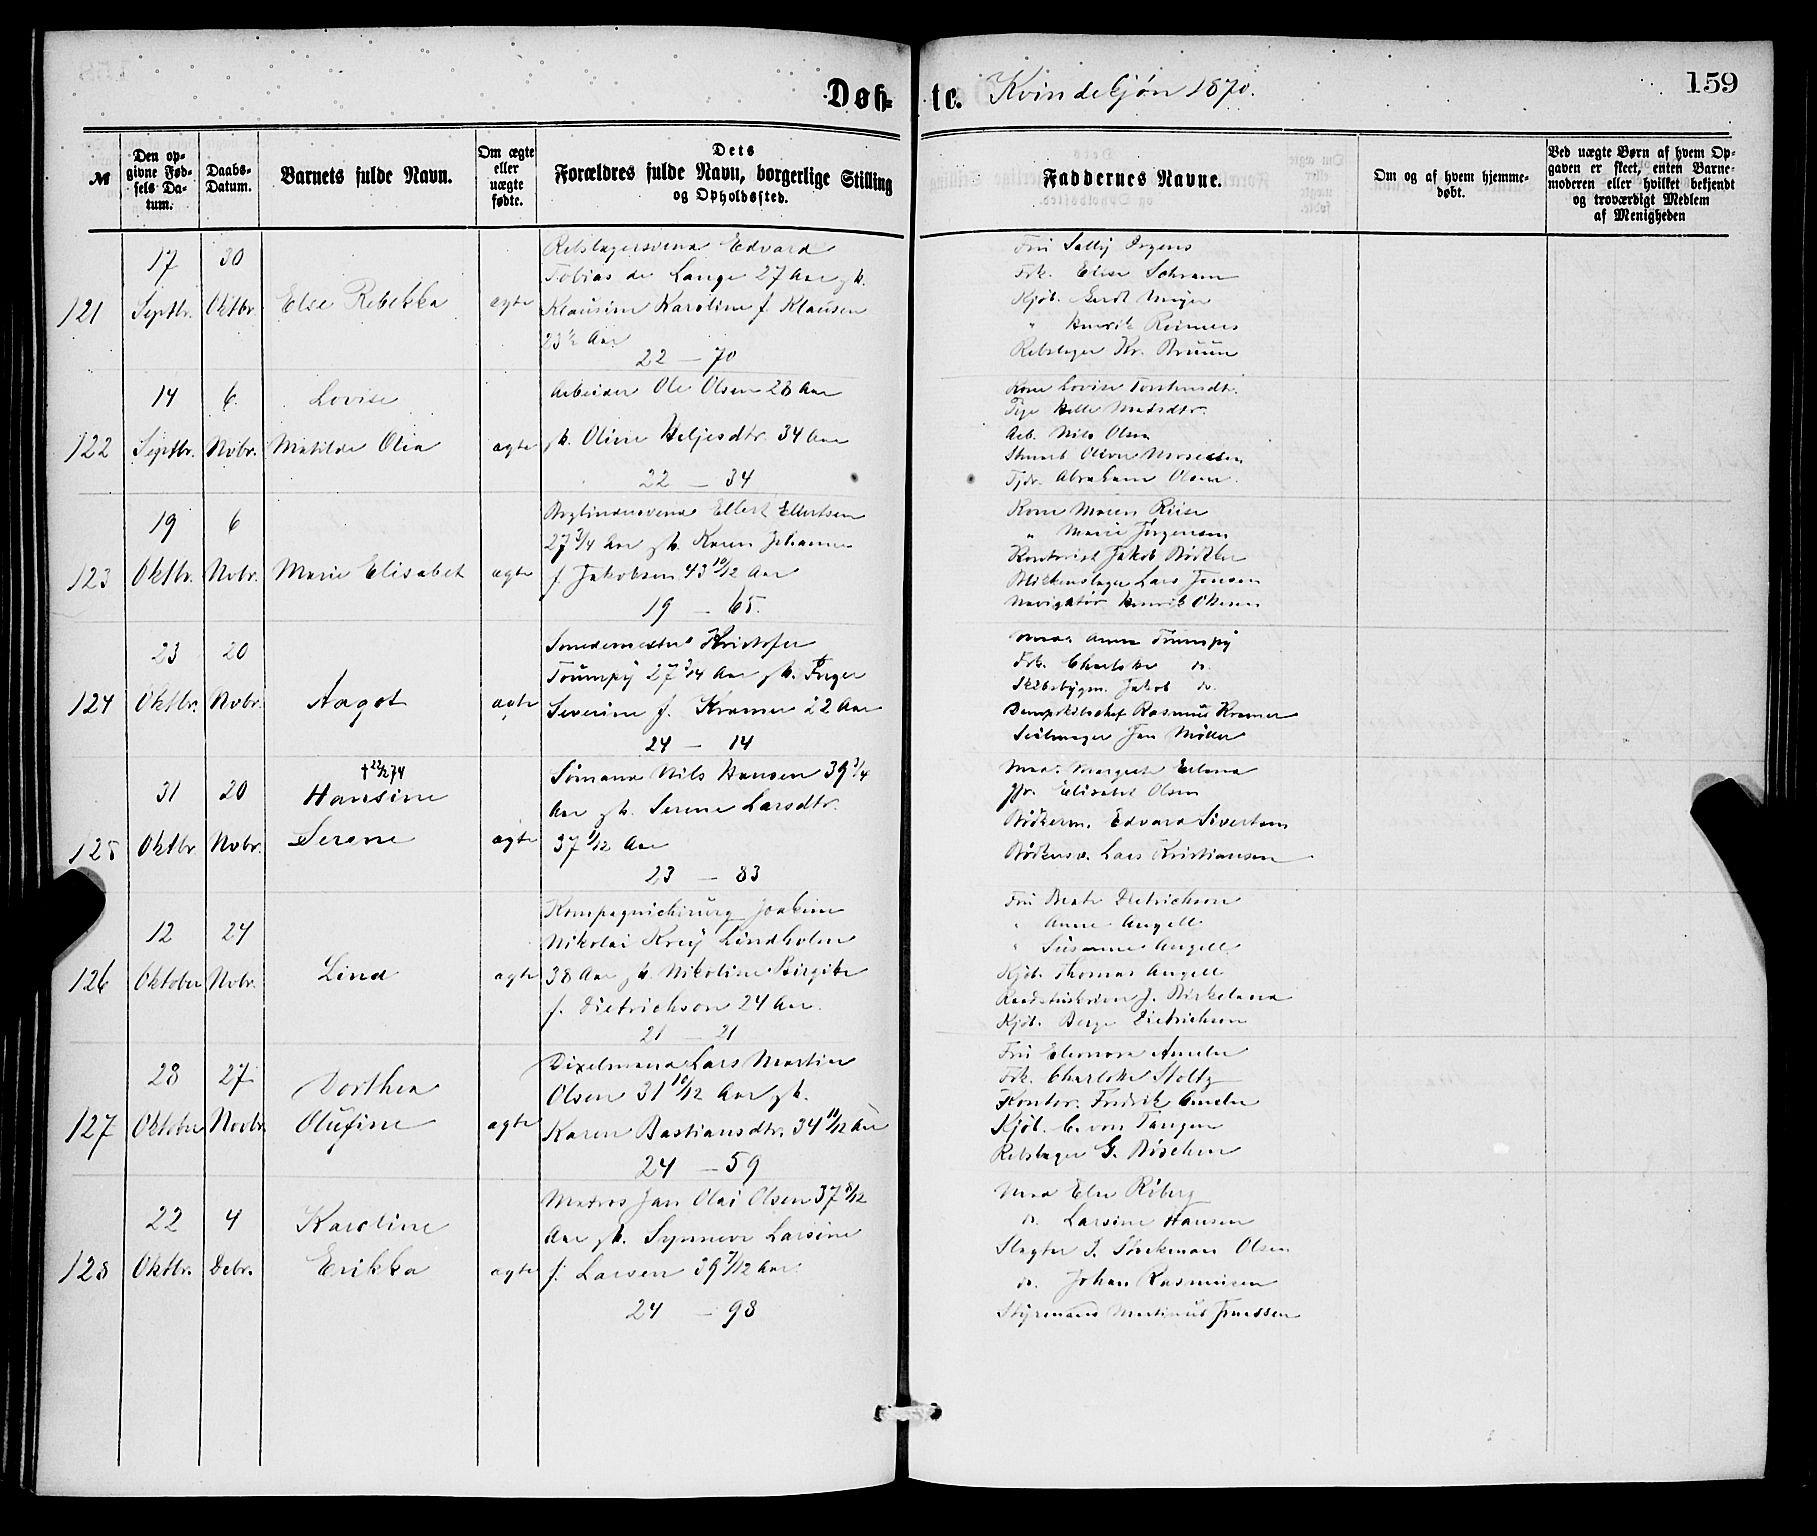 Døb-
te. Kvindekjøn 1870.
159
№
Den op-
givne Fød-
sels Da-
tum.
Daabs-
Datum.
Barnets fulde Navn.
Om ægte
eller
uægte
fødte.
Dets
Forældres fulde Navn, borgerlige Stilling
og Opholdssted.
Faddernes Navne.
Om og af hvem hjemme-
døbt.
Ved uægte Børn af hvem Op-
gaven er skeet, enten Barne-
moderen eller hvilket bekjendt
og troværdigt Medlem
af Menigheden
121
17
Septbr.
30
Oktbr.
Else Rebekka
ægte
Rebslagersvend Edvard
Tobias de Lange 27 Aar gb.
Klausine Karoline f. Klausen
23½ Aar
22 — 70
Fru
Frk. Elise Schram
Kjøb. Gerdt Meyer
" Henrik Reimers
Rebslager Kr. Bruun
122
14
Septbr.
6
Novbr.
Lovise
Matilde Olea
ægte
Arbeider Ole Olsen 28 Aar
gb. Oline Heljesdtr. 34 Aar
22 — 34
Kone Lovise Torstensdtr.
Pige Helle Madsdtr.
Arb. Nils Olsen
Oliver
Abraham Olsen.
123
19
Oktbr.
6
Novbr.
Marie Elisabet
ægte
Ellert Ellertsen
27 3/4 Aar gb. Karen Johanne
f. Jakobsen 43 10/12 Aar
19 — 65.
Kone Maren Riise
" Marie Jørgensen
Kontorist Jakob Bødtker
Blikkenslager Lars Jensen
Navigatør Henrik Olsen
124
23
Oktbr.
20
Novbr.
Aagot
ægte
Smedemester Kristofer
Trumpy 27 3/4 Aar gb. Inger
Severine f. Kramer 22 Aar
24 — 14
Mad. Anna Trumpy
Frk. Charlotte do.
Skibsbygm. Jakob do.
Rasmus Kramer
Seilmager Jan Møller
125
31
Oktbr.
20
Novbr.
† 22/2 74
Hansine
Serene
ægte
Sømand Nils Hansen 39 3/4
Aar gb. Serene Larsdtr.
37 1/12 Aar
23 — 83
Mad. Margrete
Jfr. Elisabet Olsen
Bødkerm. Edvard Sivertsen
Bødkersv. Lars Kristiansen
126
12
Oktober
24
Novbr.
Lind
ægte
Kompagnichirurg Joakim
Nikolai Krey Lindholm
38 Aar gb. Nikoline Birgite
f. Dietrichson 24 Aar.
21 — 21
Fru Beate Dietrichson
" Anne Angell
" Susanne Angell
Kjøb. Thomas Angell
Raadstueskriver J. Birkeland
Kjøb. Berge Dietrichson
127
28
Oktober
27
Novbr.
Dorthea
Olufine
ægte
Dixelmand Lars Martin
Olsen 31 10/12 Aar gb.
Karen Bastiansdtr. 34 11/12 Aar
24 — 59
Fru Eleonora Ameln
Frk. Charlotte Stoltz
Kontor. Fredrik Ameln
Kjøb. C. von Tangen
Rebslager G. Bøschen
128
22
Oktbr.
4
Debr.
Karoline
Erikka
ægte
Matros Jan Olai Olsen 37 8/12
Aar gb. Synneve Larsine
f. Larsen 39 7/12 Aar.
24 — 98
Mad Else Riberg
do. Larsine Hansen
Slagter J. Olsen
do. Johan Rasmussen
Styrmand Martinus